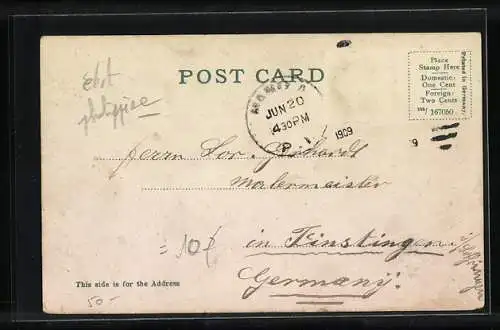 POST CARD
Place
Stamp Here
Domestic:
One Cent
Foreign:
Two Cents
167050
Printed in Germany.
JUN 20
4 30 PM
P I
1909
9
Herrn Lor. Gebhardt
Malermeister
= 10
in Finstingen
Germany.
This side is for the Address
50.-